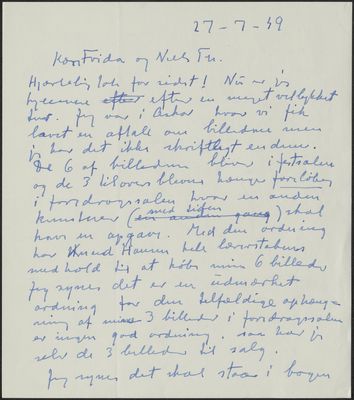 27-7-49
Kære Frida og Niels Th.
Hjertelig tak for sidst! Nu er jeg
hjemme efter efter en meget vellykket
tur. Jeg var i Askov hvor vi fik
lavet en aftale om billederne men
jeg har det ikke skriftligt endnu.
De 6 af billederne bliver i festsalen
og de 3 tiloversblevne hænge foreløbig
i foredragssalen hvor en anden
kunstner (med tiden) skal
have en opgave. Med den ordning
har Knud Hansen hele lærerstabens
medhold til at købe mine 6 billeder
Jeg synes det er en udmærket
ordning for den tilfældige ophæng-
ning af mine 3 billeder i foredragssalen
er ingen god ordning. saa har jeg
selv de 3 billeder til salg.
Jeg synes det skal staa i bogen